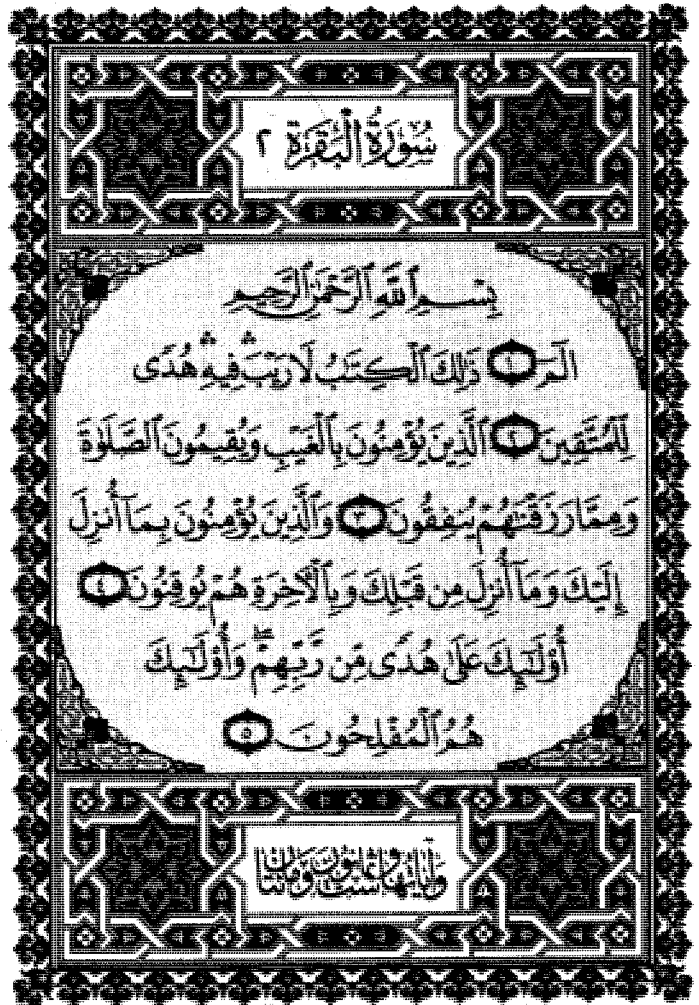 سُورَةُ الْبَقَرَةِ ٢
بِسْمِ ٱللَّهِ ٱلرَّحْمَٰنِ ٱلرَّحِيمِ
الٓمٓ ١ ذَٰلِكَ ٱلْكِتَٰبُ لَا رَيْبَ ۛ فِيهِ ۛ هُدًى
لِّلْمُتَّقِينَ ٢ ٱلَّذِينَ يُؤْمِنُونَ بِٱلْغَيْبِ وَيُقِيمُونَ ٱلصَّلَوٰةَ
وَمِمَّا رَزَقْنَٰهُمْ يُنفِقُونَ ٣ وَٱلَّذِينَ يُؤْمِنُونَ بِمَآ أُنزِلَ
إِلَيْكَ وَمَآ أُنزِلَ مِن قَبْلِكَ وَبِٱلْءَاخِرَةِ هُمْ يُوقِنُونَ ٤
أُو۟لَٰٓئِكَ عَلَىٰ هُدًى مِّن رَّبِّهِمْ ۖ وَأُو۟لَٰٓئِكَ
هُمُ ٱلْمُفْلِحُونَ ٥
وآياتها ست وثمانون ومائتان